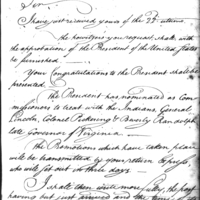 Sir,
I have just received yours of the 22d ultimo.
the howitzers you request, shall with
the approbation of the President of the United States
be furnished —
Your Congratulations to the President shall be
presented.
The President has nominated as Com-
missioners to treat with the Indians General
Lincoln, Colonel Pickering & Beverly Randolph
late Governor of Virginia.
The Promotions which have taken place
will be transmitted by your return Express,
who will set out in three days —
I shall then write more fully, the post
having but just arrived and the time